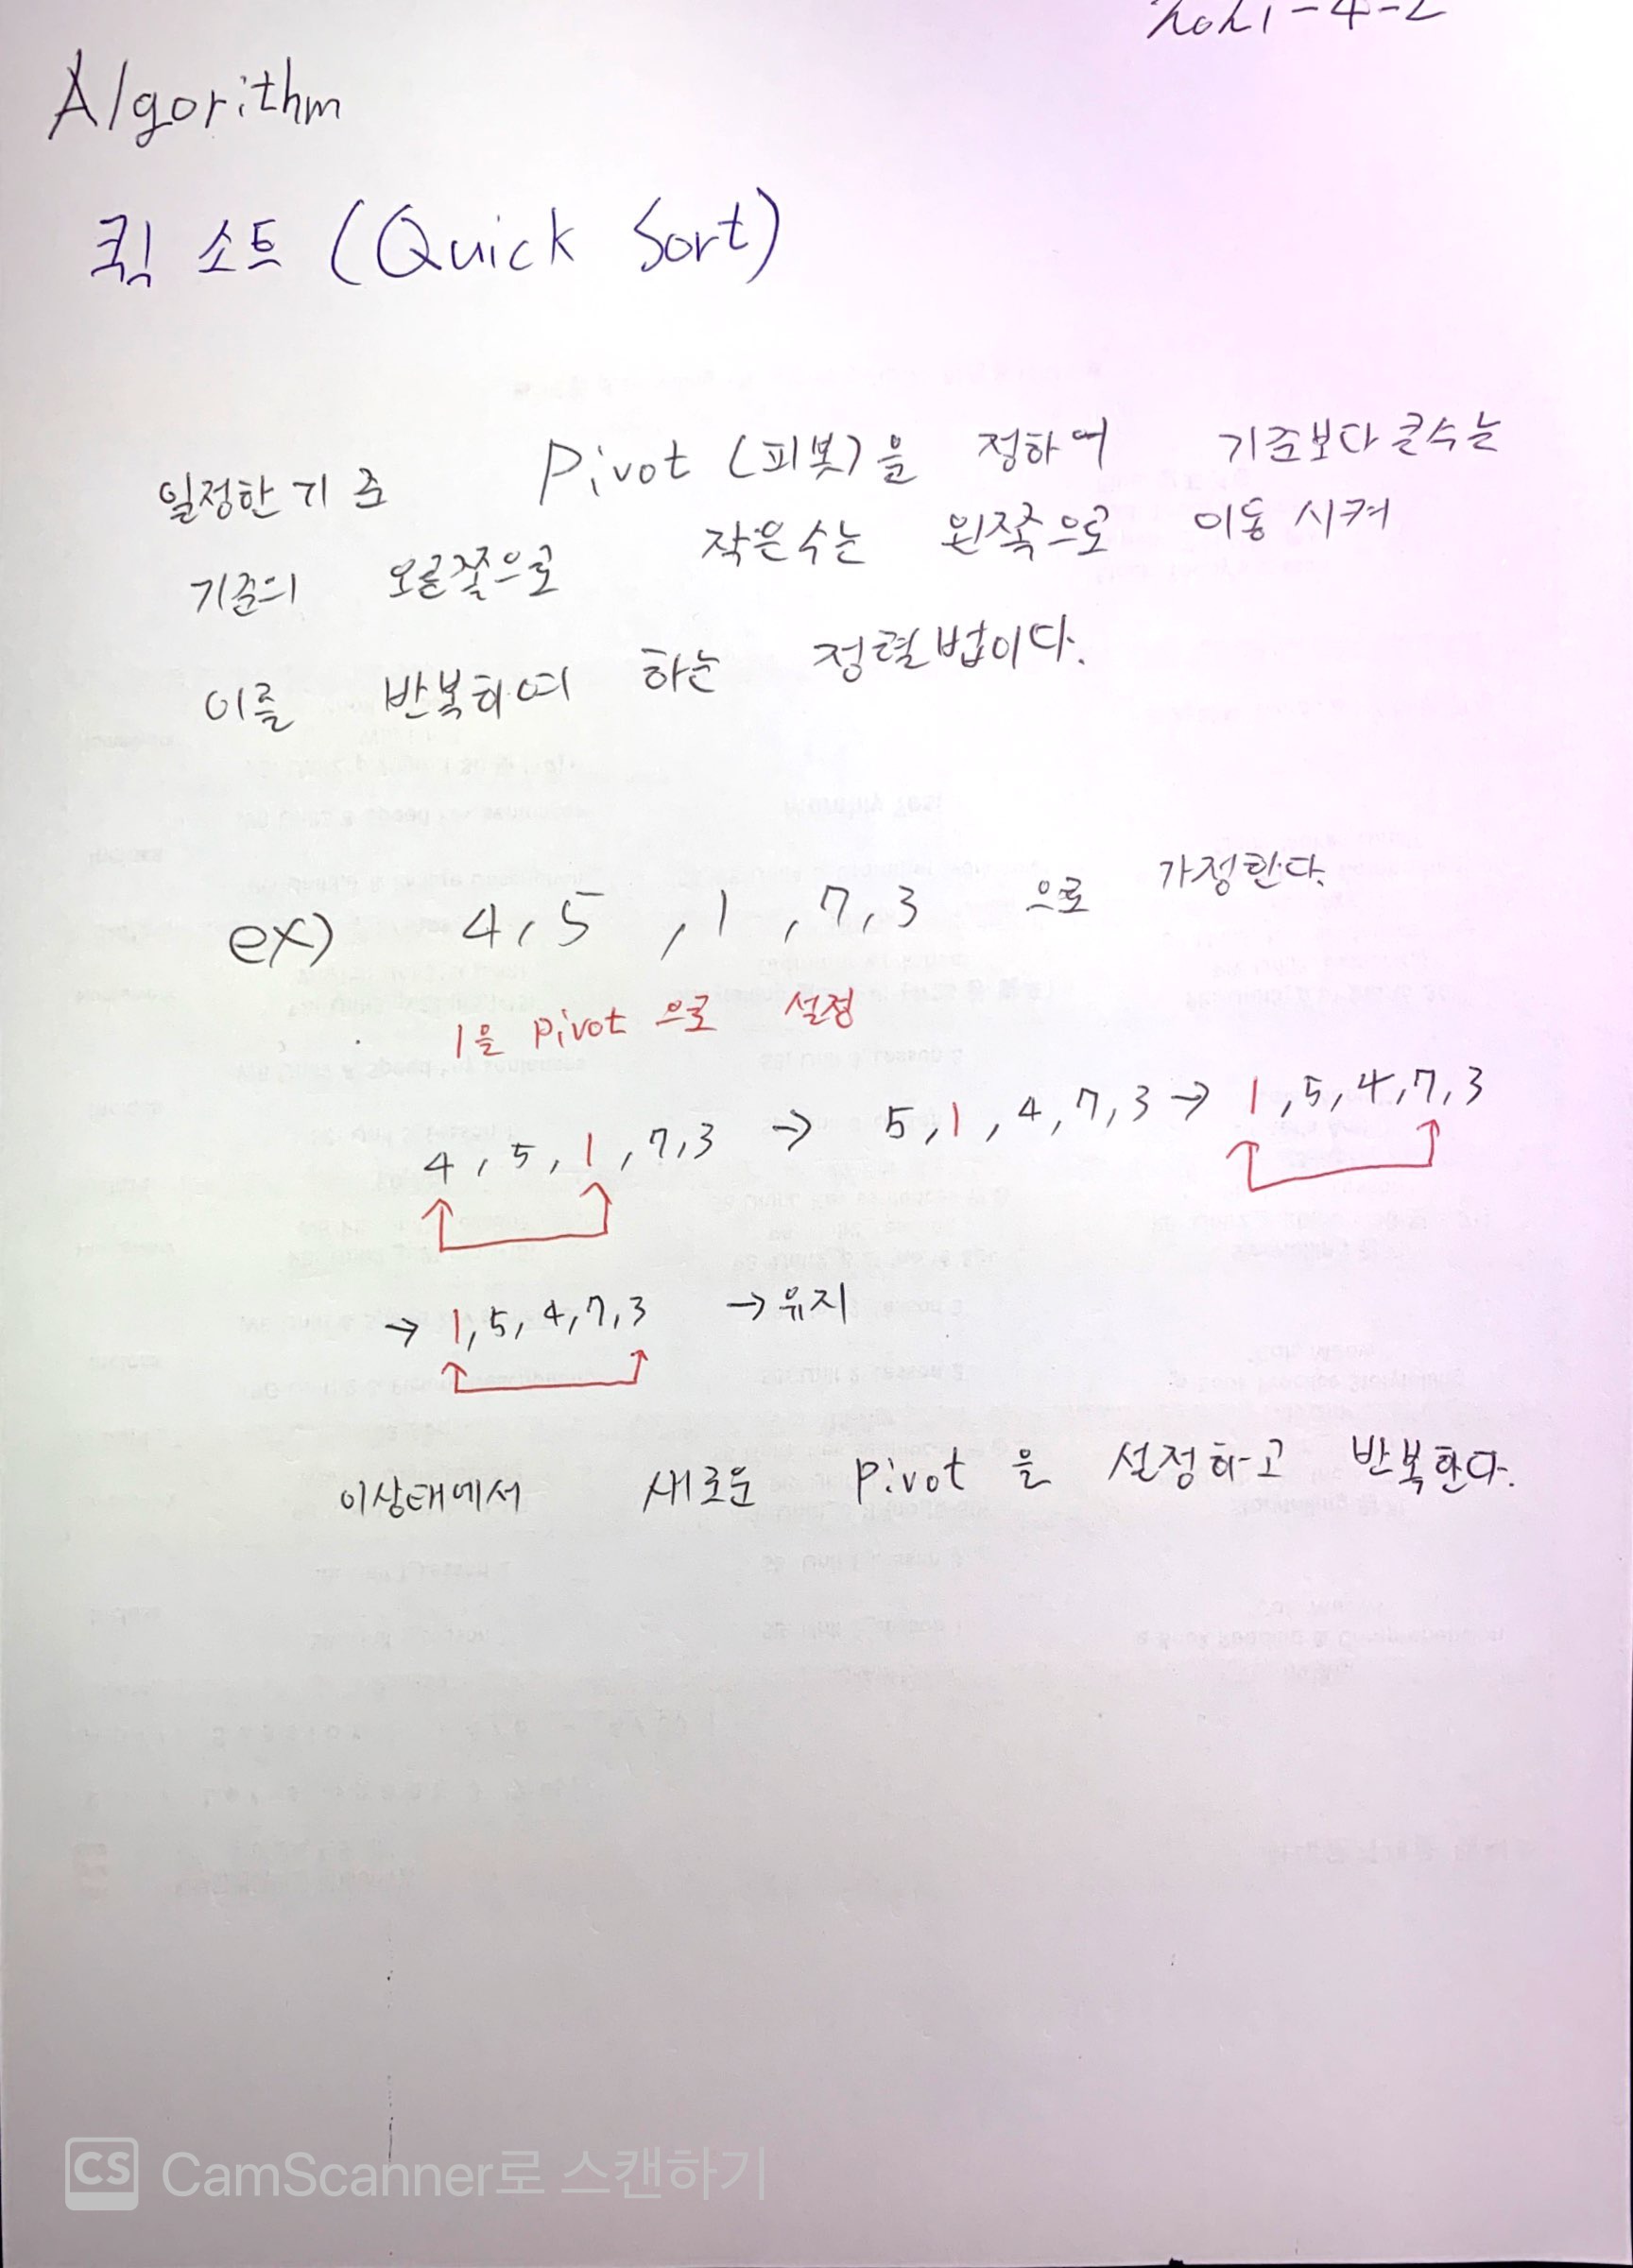 2021-4-2
Algorithm
퀵 소트 (Quick Sort)
일정한 기준 Pivot (피봇)을 정하여 기준보다 큰수는
기준의 오른쪽으로 작은수는 왼쪽으로 이동 시켜
이를 반복하여 하는 정렬법이다.
ex) 4, 5 , 1 , 7, 3 으로 가정한다.
1을 pivot 으로 설정
4 , 5 , 1 , 7, 3 → 5, 1 , 4, 7, 3 → 1 , 5, 4, 7, 3
→ 1, 5, 4, 7, 3 → 유지
이상태에서 새로운 Pivot 을 설정하고 반복한다.
CS CamScanner로 스캔하기